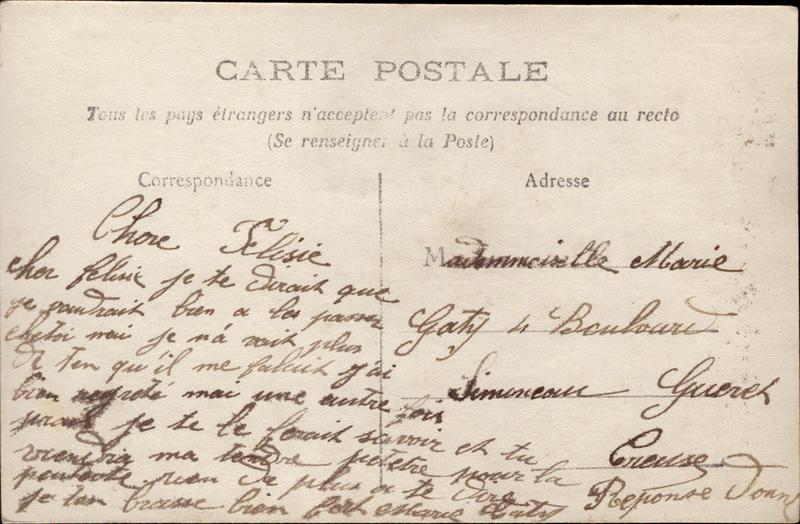 CARTE POSTALE
Tous les pays étrangers n'acceptent pas la correspondance au recto
(Se renseigner à la Poste)
Correspondance
Adresse
Chere Félisie
cher félisie je te dirait que
je voudrait bien a les passer
chetoi mai je n'a vait plus
de ten qu'il me falait j'ai
bien regreté mai une autre fois
je te le ferait savoir et tu
viendra ma tendre petetre pour la
rien de plus a te dire
je ten brasse bien fort Marie Gaty
Mademmoiselle Marie
Gaty 4 Boulvard
Simmneau Gueret
Creuse
Reponse Donne